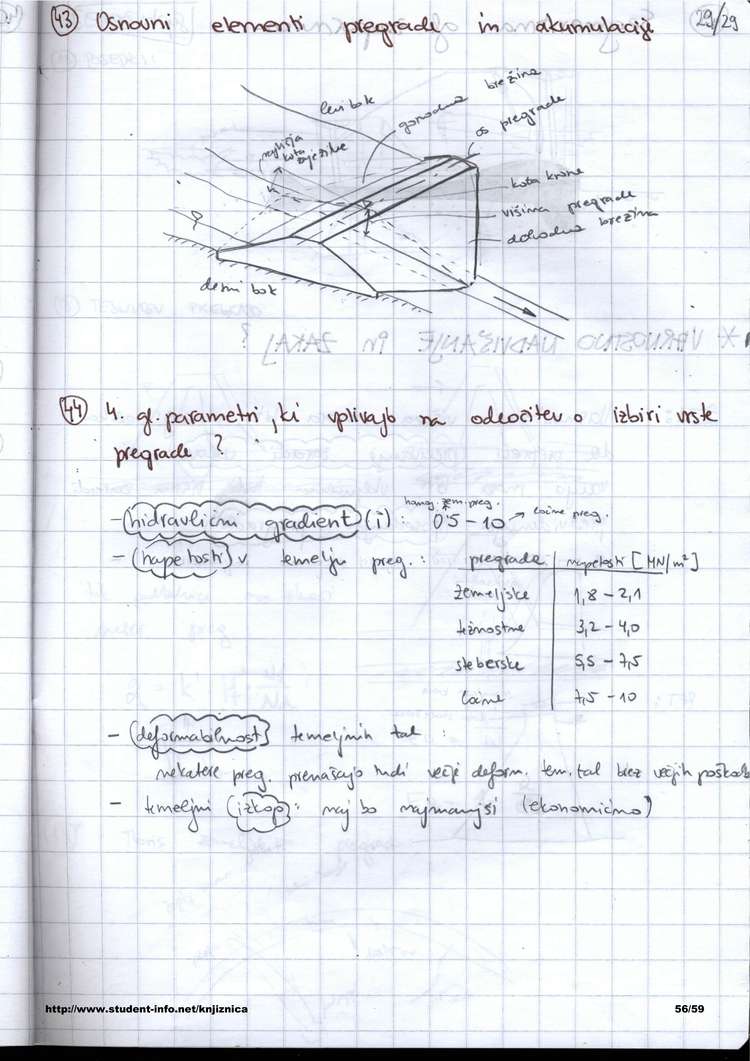 43 Osnovni elementi pregrade in akumulacije 29/29
levi bok
gorvodna brežina
os pregrade
najvišja
kota
zajezitve
kota krone
višina pregrade
dolvodna brežina
desni bok
* VARNOSTNO NADVIŠANJE IN ZAKAJ ?
44 4. gl. parametri, ki vplivajo na odločitev o izbiri vrste
pregrade ?
- hidravlični gradient (i) : 0.5 - 10 → ločne preg.
homog. zem. preg.
- napetosti v temelju preg. :
pregrade napetosti [MN/m²]
zemeljske 1,8 - 2,1
težnostne 3,2 - 4,0
steberske 5,5 - 7,5
ločne 7,5 - 10
- deformabilnost temeljnih tal :
nekatere preg. prenašajo tudi večje deform. tem. tal brez večjih poškodb
- temeljni izkop : naj bo najmanjši (ekonomično)
http://www.student-info.net/knjiznica 56/59